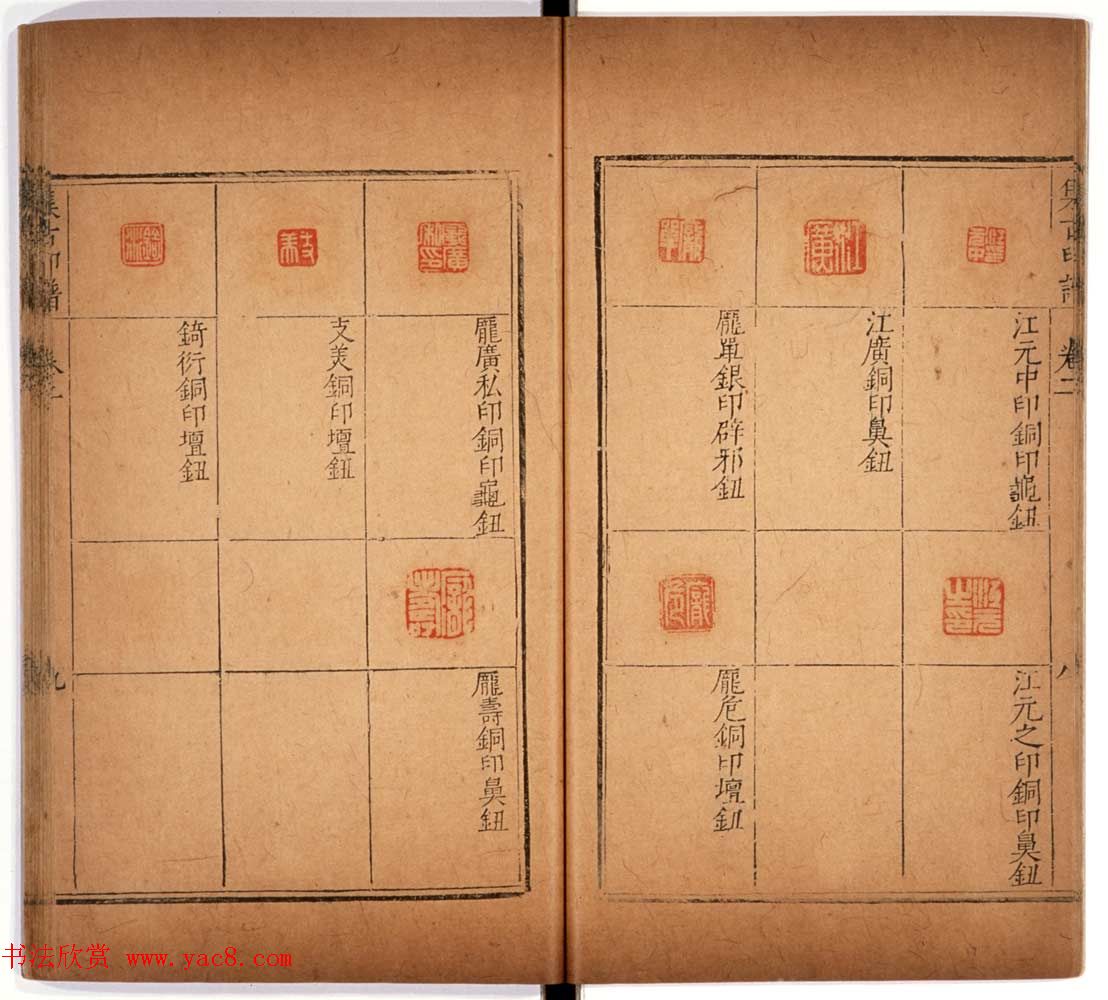 集古印譜 卷二 八
江元中印銅印龜鈕
江元之印銅印鼻鈕
江廣銅印鼻鈕
龐單銀印辟邪鈕
龐危銅印壇鈕
龐廣私印銅印龜鈕
龐壽銅印鼻鈕
支羙銅印壇鈕
錡衍銅印壇鈕
集古印譜 九
书法欣赏 www.yac8.com